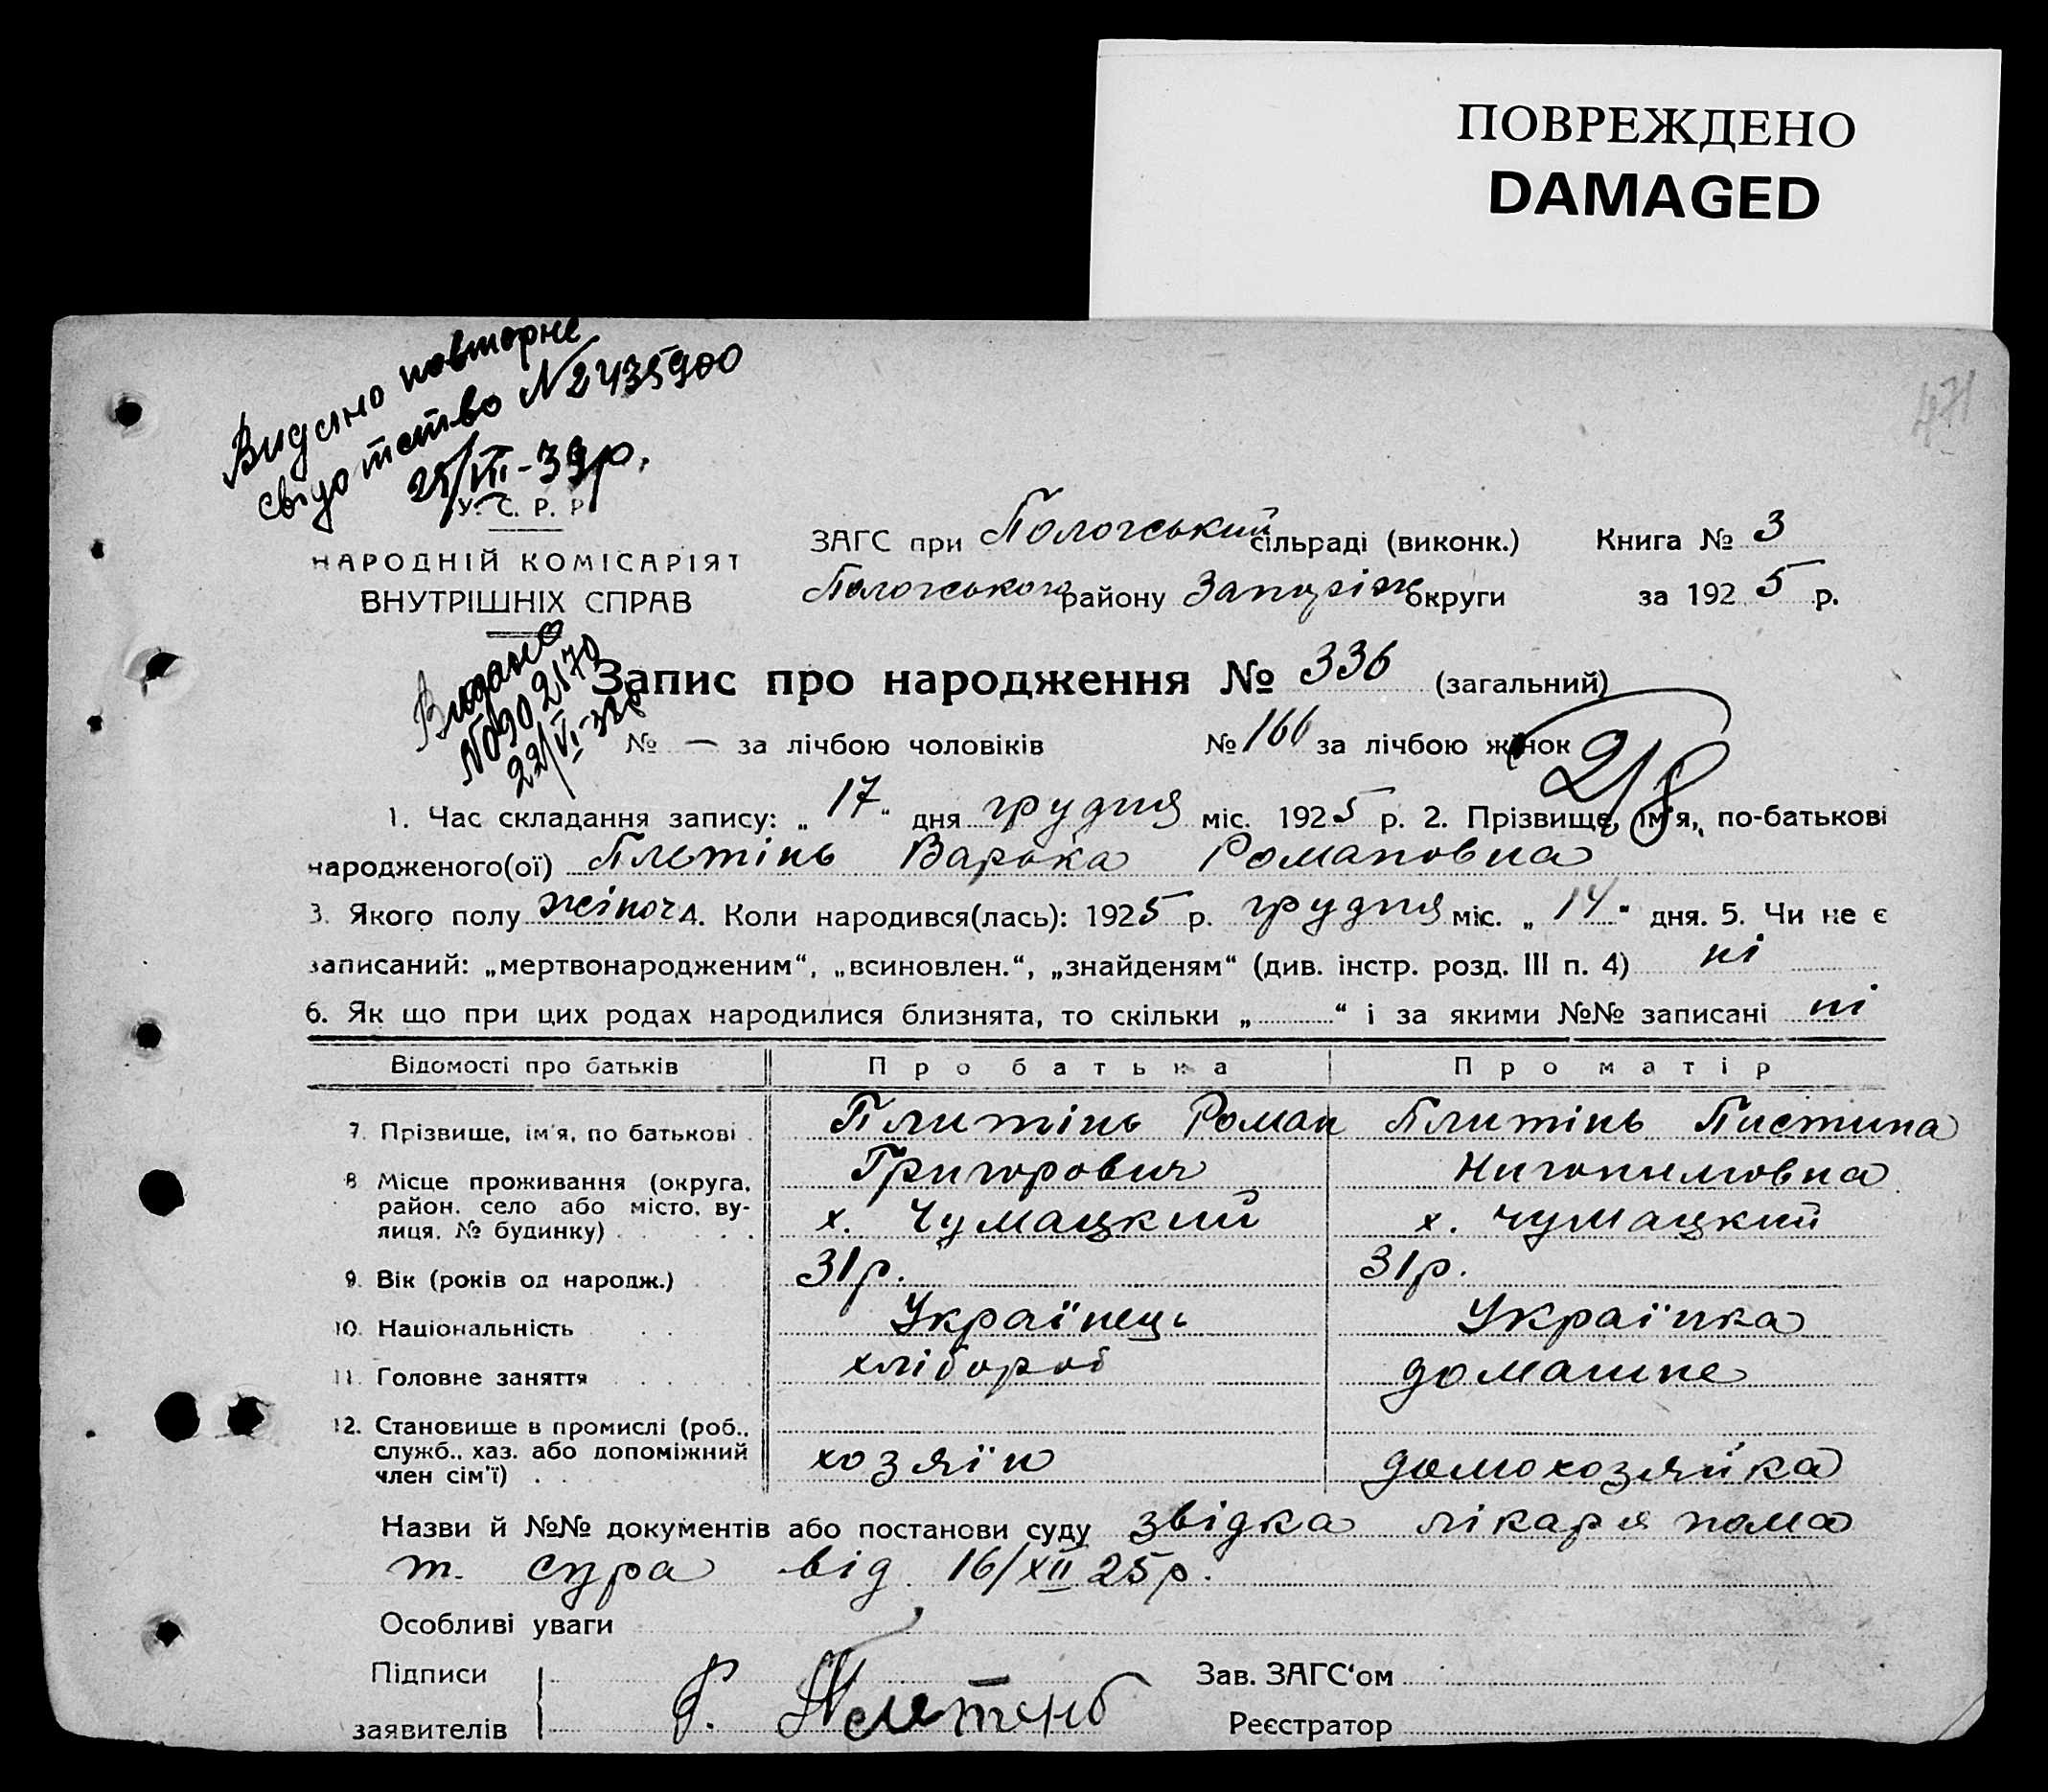 ПОВРЕЖДЕНО
DAMAGED
471
Видано повторне
свідотство № 2435900
25/VII-39р.
У. С. Р. Р.
НАРОДНІЙ КОМІСАРІЯТ
ВНУТРІШНІХ СПРАВ
ЗАГС при Пологський сільраді (виконк.) Книга № 3
Пологського району Запоріж округи за 1925 р.
Видано
№ 902170
22/VI-32р
Запис про народження № 336 (загальний)
№ — за лічбою чоловіків № 166 за лічбою жінок
218
1. Час складання запису: „17“ дня грудня міс. 1925 р. 2. Прізвище, ім'я, по-батькові
народженого(ої) Плетінь Варька Романовна
3. Якого полу жіноч 4. Коли народився(лась): 1925 р. грудня міс. „14“ дня. 5. Чи не є
записаний: „мертвонародженим“, „всиновлен.“, „знайденям“ (див. інстр. розд. III п. 4) ні
6. Як що при цих родах народилися близнята, то скільки „ “ і за якими №№ записані ні
Відомості про батьків Про батька Про матір
7. Прізвище, ім'я, по батькові Плитінь Роман Плитінь Пистина
Григорович
8. Місце проживання (округа,
район, село або місто, ву-
лиця, № будинку) х. Чумацкий х. Чумацкий
9. Вік (років од народж.) 31р. 31р.
10. Національність Українець Українка
11. Головне заняття хлібороб домашнє
12. Становище в промислі (роб.,
служб., хаз. або допоміжний
член сім'ї) хозяїн домохозяйка
Назви й №№ документів або постанови суду звідка лікаря
від 16/XII 25р.
Особливі уваги
Підписи
заявителів Р. Плетень
Зав. ЗАГС'ом
Реєстратор